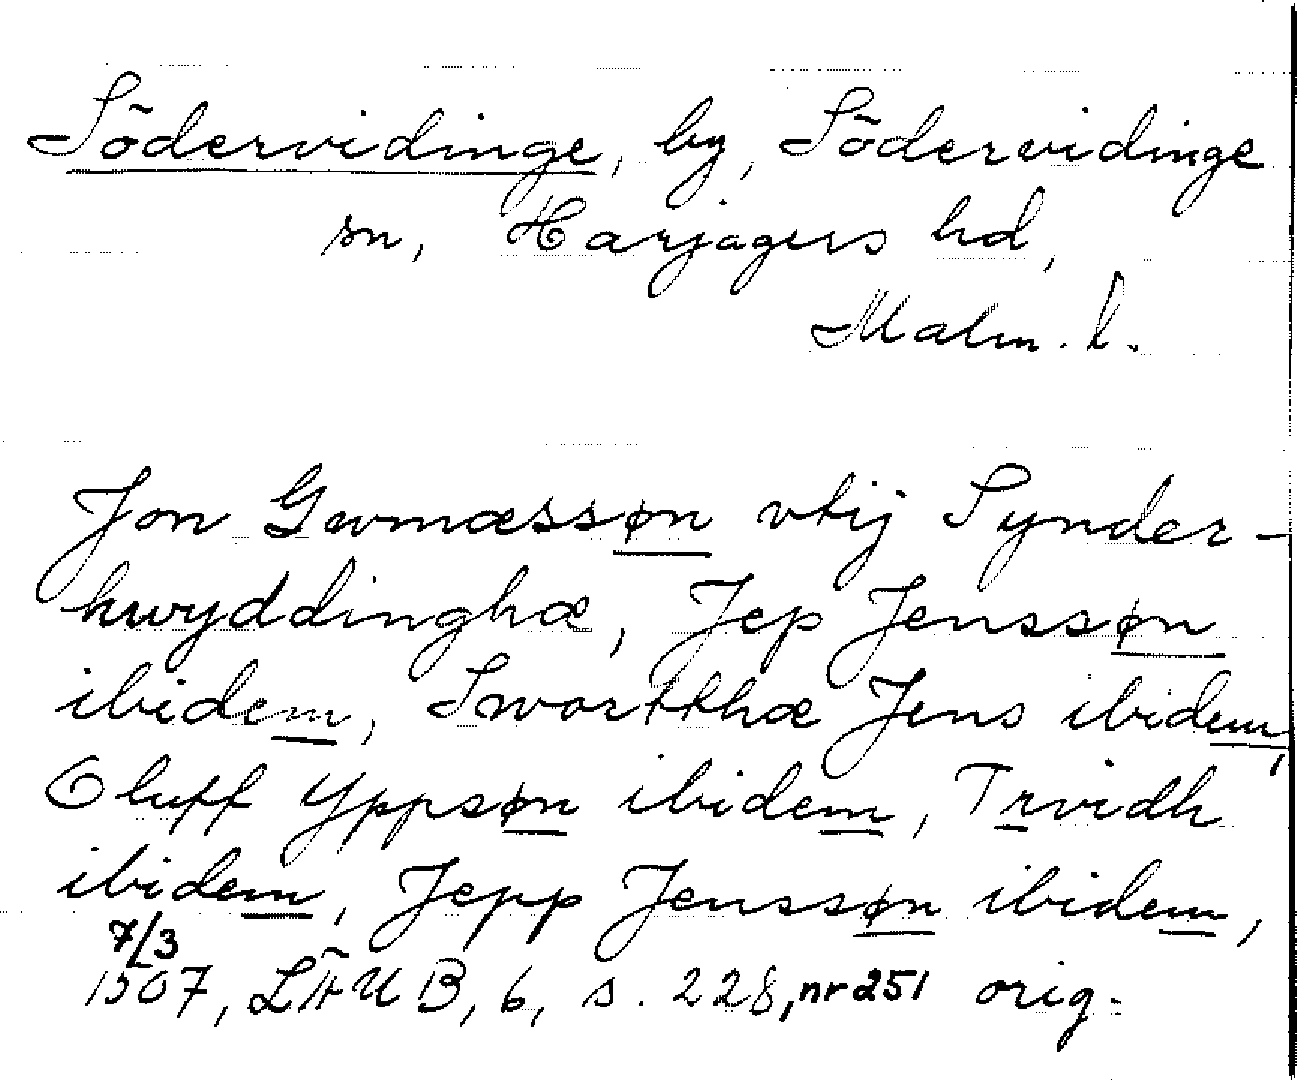 Södervidinge, by, Södervidinge
sn, Harjagers hd,
Malm. l.
Jon Gwmæssøn vtij Synder-
hwyddinghæ, Jep Jenssøn
ibidem, Swortthæ Jens ibidem,
Oluff Yppsøn ibidem, Trvidh
ibidem, Jepp Jenssøn ibidem,
7/3
1507, LÄUB, 6, s. 228, nr 251 orig.